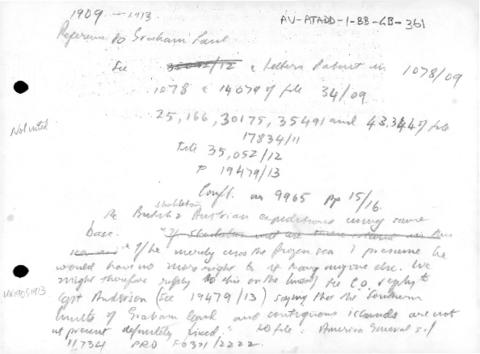 1909 — 1913
AV-ATADD-1-88-GB-361
Reference to Graham Land
See 35052/12 & letters Patent in 1078/09
1078 & 14079 of file 34/09
Not listed
25,166, 30175, 35491 and 43344 of file
17834/11
File 35,052/12
P 19479/13
Confl. in 9965 pp 15/16.
Shackleton
Re British & Austrian expeditions using same
base.
"If he merely cross the frozen sea I presume he
would have no more right to it than anyone else. We
might therefore reply to this on the lines of the C.O. reply to
Capt Anderson (see 19479/13) saying that the Southern
limits of Graham Land and contiguous islands are not
at present definitely fixed."
FO file. America General s/
11,734 PRO F6371/2222.